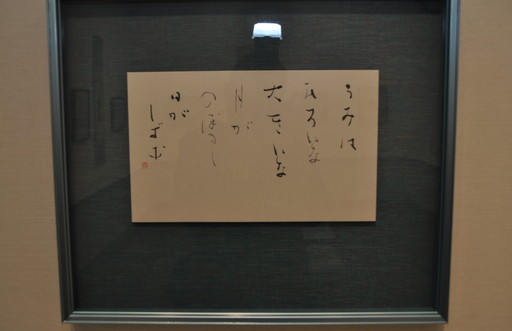 うみは
ひろいな
大きいな
月が
のぼるし
日が
しずむ